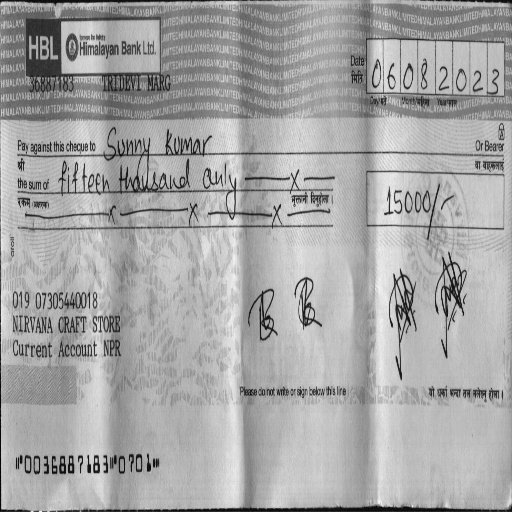 HBL Himalayan Bank Ltd.
36887183 TRIDEVI MARG
Date 06082023
मिति
Day/गते Month/महिना Year/साल
Pay against this cheque to Sunny Kumar Or Bearer
श्री वा वाहकलाई
the sum of fifteen thousand only —x— 15000/-
रकम (अक्षरमा) भुक्तानी दिनुहोला
019 07305440018
NIRVANA CRAFT STORE
Current Account NPR
Please do not write or sign below this line
"0036887183"0701"